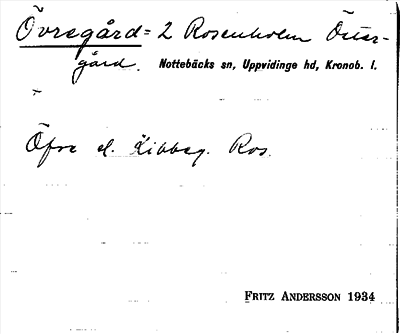 Övregård = 2 Rosenholm Öster-
gård. Nottebäcks sn, Uppvidinge hd, Kronob. l.
Öfre el. Ros.
FRITZ ANDERSSON 1934